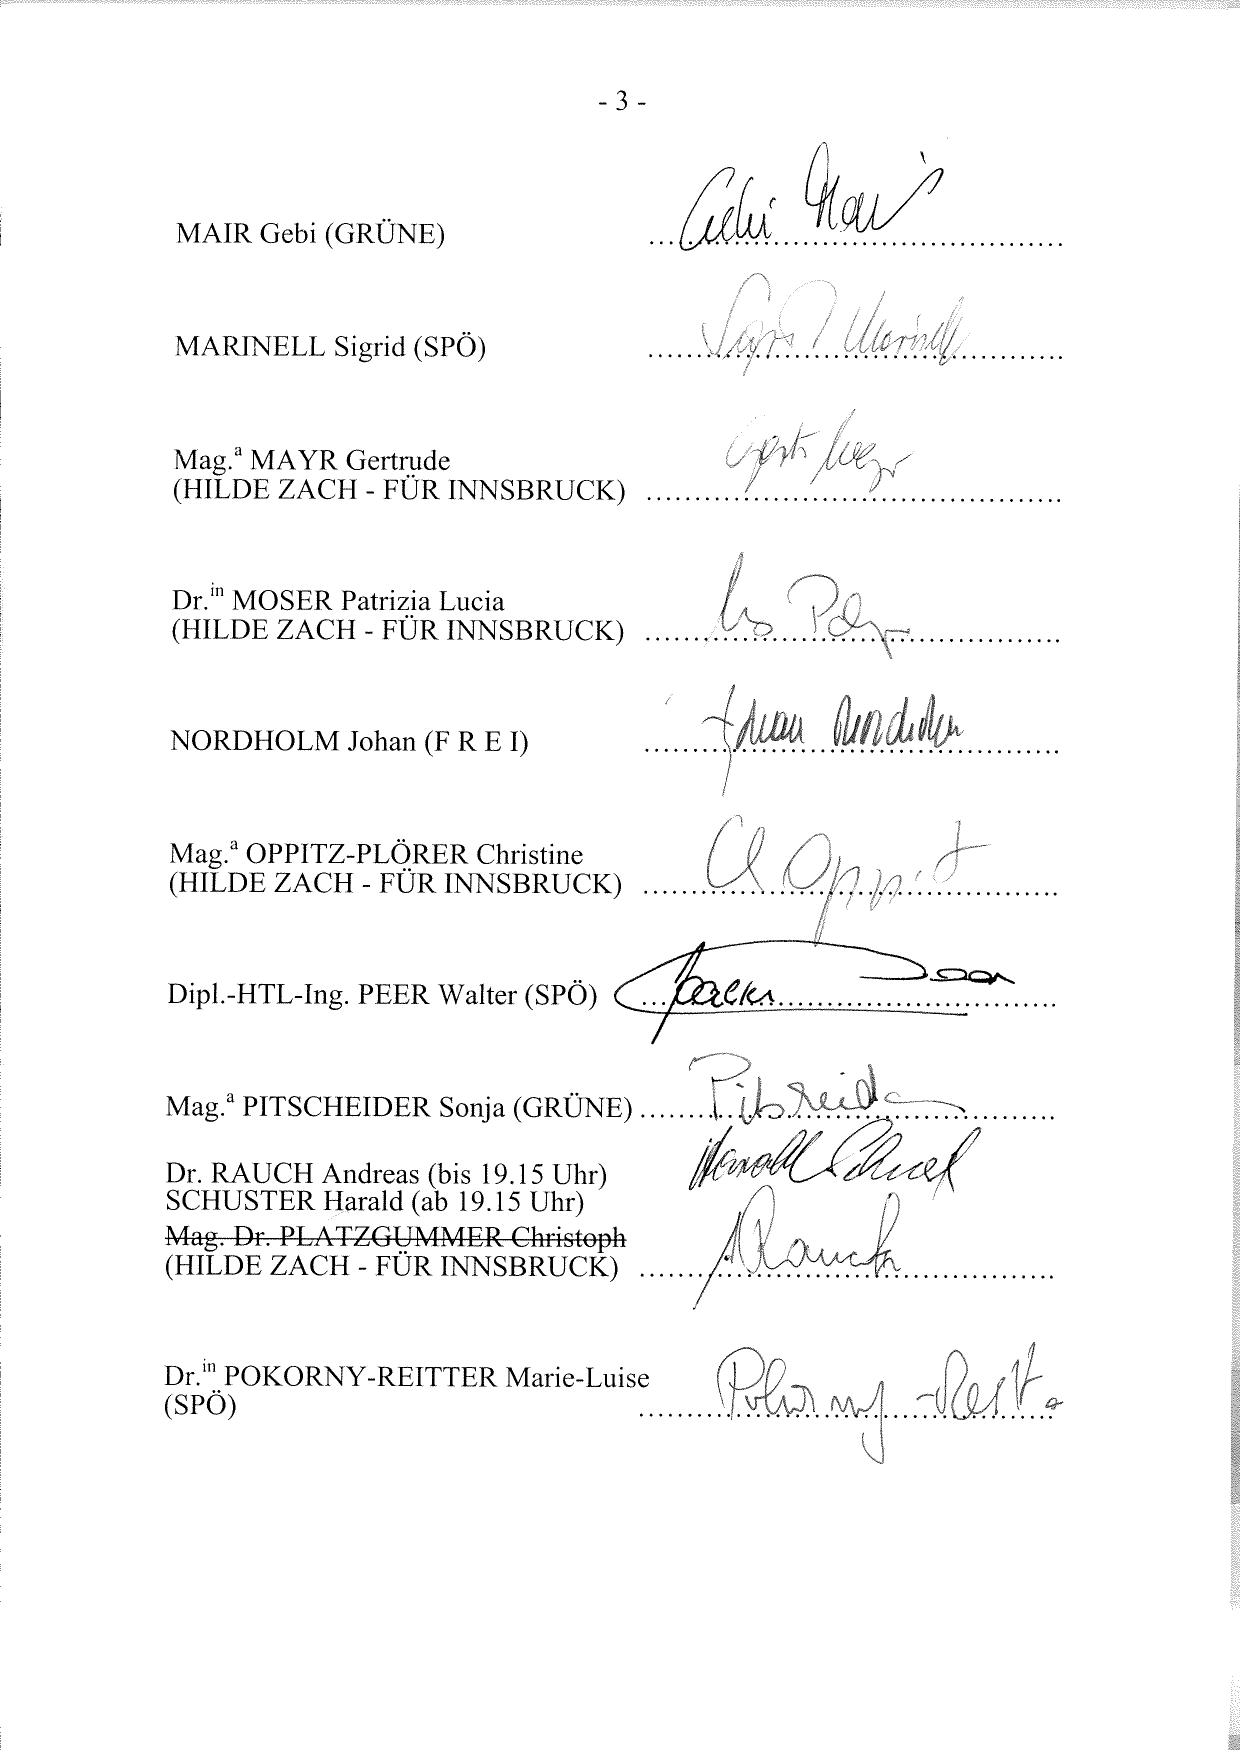 - 3 -
MAIR Gebi (GRÜNE) ........................................ Gebi Mair
MARINELL Sigrid (SPÖ) ........................................ Sigrid Marinell
Mag.ᵃ MAYR Gertrude
(HILDE ZACH - FÜR INNSBRUCK) ........................................
Dr.ⁱⁿ MOSER Patrizia Lucia
(HILDE ZACH - FÜR INNSBRUCK) ........................................
NORDHOLM Johan (F R E I) ........................................
Mag.ᵃ OPPITZ-PLÖRER Christine
(HILDE ZACH - FÜR INNSBRUCK) ........................................ Oppitz
Dipl.-HTL-Ing. PEER Walter (SPÖ) ........................................
Mag.ᵃ PITSCHEIDER Sonja (GRÜNE) ........................................
Dr. RAUCH Andreas (bis 19.15 Uhr) Harald Schuster
SCHUSTER Harald (ab 19.15 Uhr)
Mag. Dr. PLATZGUMMER Christoph
(HILDE ZACH - FÜR INNSBRUCK) ........................................ ARauch
Dr.ⁱⁿ POKORNY-REITTER Marie-Luise
(SPÖ) ........................................ Pokorny-Reitter